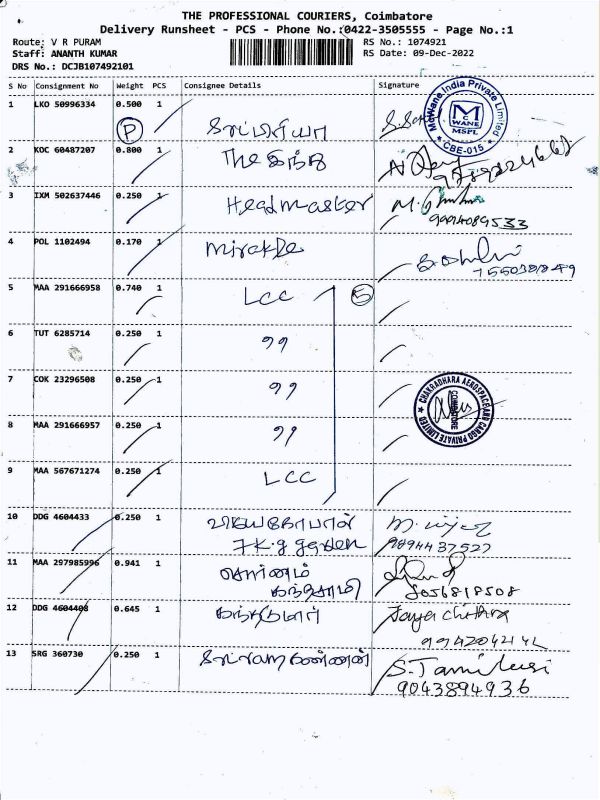 THE PROFESSIONAL COURIERS, Coimbatore
Delivery Runsheet - PCS - Phone No.:0422-3505555 - Page No.:1
Route: V R PURAM RS No.: 1074921
Staff: ANANTH KUMAR RS Date: 09-Dec-2022
DRS No.: DCJB107492101
S No Consignment No Weight PCS Consignee Details Signature
1 LKO 50996334 0.500 1
P
MaWane India Private Limited
MC WANE
MSPL
* CBE-015 *
2 KOC 60487207 0.800 1 The இந்து
3 IXM 502637446 0.250 1 Headmaster
9994089533
4 POL 1102494 0.170 1
5 MAA 291666958 0.740 1 LCC 5
6 TUT 6285714 0.250 1 ,,
7 COK 23296508 0.250 1 ,,
CHAKRADHARA AEROSPACE AND CARGO PRIVATE LIMITED
COIMBATORE
8 MAA 291666957 0.250 1 ,,
9 MAA 567671274 0.250 1 LCC
10 DDG 4604433 0.250 1
garden 9894437527
11 MAA 297985996 0.941 1
கந்தசாமி 8056818508
12 DDG 4604408 0.645 1 Jaya chithra
13 SRG 360730 0.250 1 S. Tamilarasi
9043894936